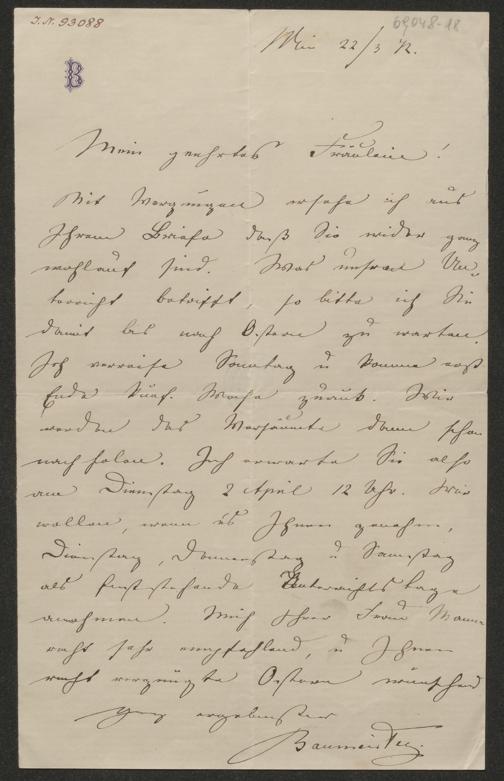 I.N. 93088
69048-18
B
Wien 22/3 72.
Mein geehrtes Fräulein!
Mit Vergnügen ersehe ich aus
Ihrem Briefe daß Sie wider ganz
wohlauf sind. Was unsren Un-
terricht betrifft, so bitte ich Sie
damit bis nach Ostern zu warten.
Ich verreise Sonntag u komme erst
Ende künf. Woche zurük. Wir
werden das Versäumte dann schon
nachholen. Ich erwarte Sie also
am Dienstag 2 April 12 Uhr. Wir
wollen, wenn es Ihnen genehm,
Dienstag, Donnerstag u Samstag
als feststehende Unterrichtstage
annehmen. Mich Ihrer Frau Mama
recht sehr empfehlend, u Ihnen
recht vergnügte Ostern wünschend
ganz ergebenster
Baumeister